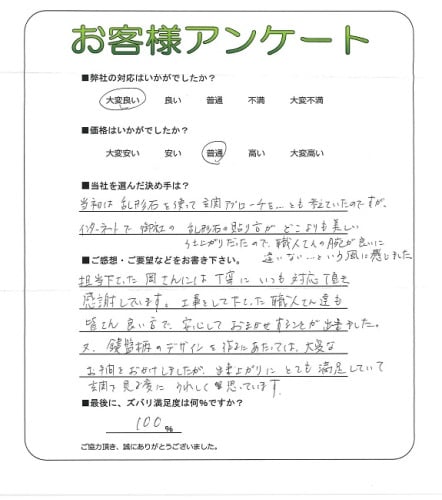 お客様アンケート
■弊社の対応はいかがでしたか?
大変良い 良い 普通 不満 大変不満
■価格はいかがでしたか?
大変安い 安い 普通 高い 大変高い
■当社を選んだ決め手は?
当初は乱形石を使って玄関アプローチを…とも考えていたのですが、
インターネットで御社の乱形石の貼り方がどこよりも美しい
仕上がりだったので、職人さんの腕が良いに
違いない…という風に感じました
■ご感想・ご要望などをお書き下さい。
担当下さった岡さんには丁寧にいつも対応頂き
感謝しています。工事をして下さった職人さん達も
皆さん良い方で、安心しておまかせすることが出来ました。
又、鍵盤柄のデザインを作るにあたっては、大変な
お手間をおかけしましたが、出来上がりにとても満足していて
玄関を見る度にうれしく思っています。
■最後に、ズバリ満足度は何%ですか?
100 %
ご協力頂き、誠にありがとうございました。